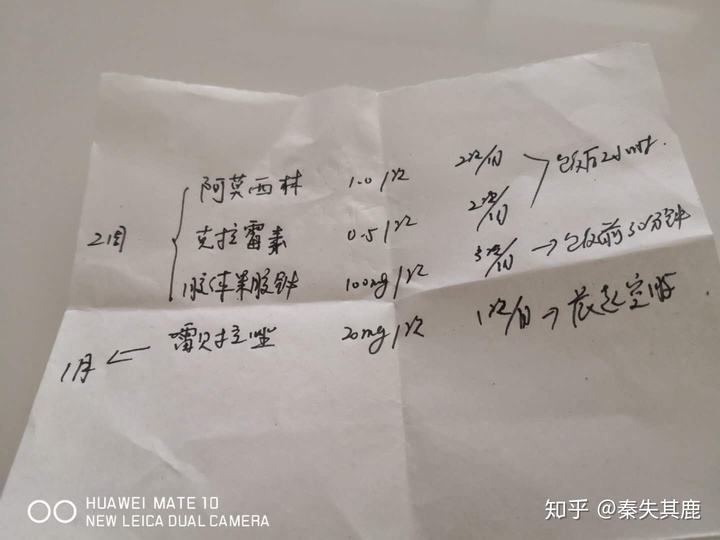 阿莫西林 1.0/次 2次/日
饭后2小时.
2周 克拉霉素 0.5/次 2次/日
胶体果胶铋 100mg/次 3次/日 → 饭前30分钟
1月 ← 雷贝拉唑 20mg/次 1次/日 → 晨起空腹
HUAWEI MATE 10
NEW LEICA DUAL CAMERA
知乎 @秦失其鹿